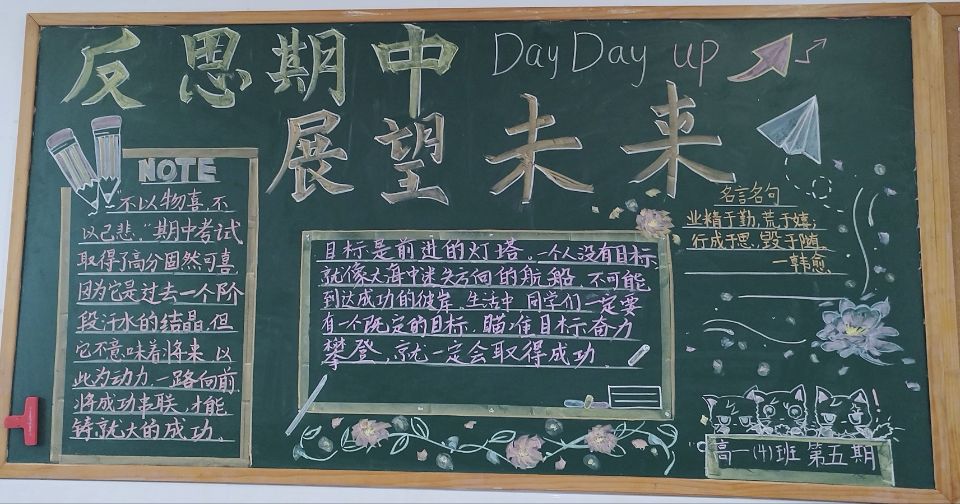 反思期中
Day Day up
展望未来
NOTE
"不以物喜,不
以己悲,"期中考试
取得了高分固然可喜
因为它是过去一个阶
段汗水的结晶,但
它不意味着将来,以
此为动力,一路向前
将成功串联,才能
铸就大的成功。
目标是前进的灯塔。一个人没有目标,
就像大海中迷失方向的航船,不可能
到达成功的彼岸,生活中,同学们一定要
有一个既定的目标,瞄准目标,奋力
攀登,就一定会取得成功.
名言名句
业精于勤,荒于嬉;
行成于思,毁于随。
一韩愈
高一(4)班 第五期